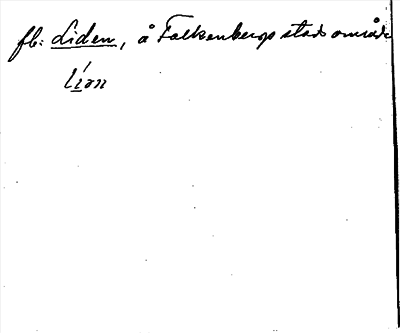 fb: Liden, å Falkenbergs stads område
líon